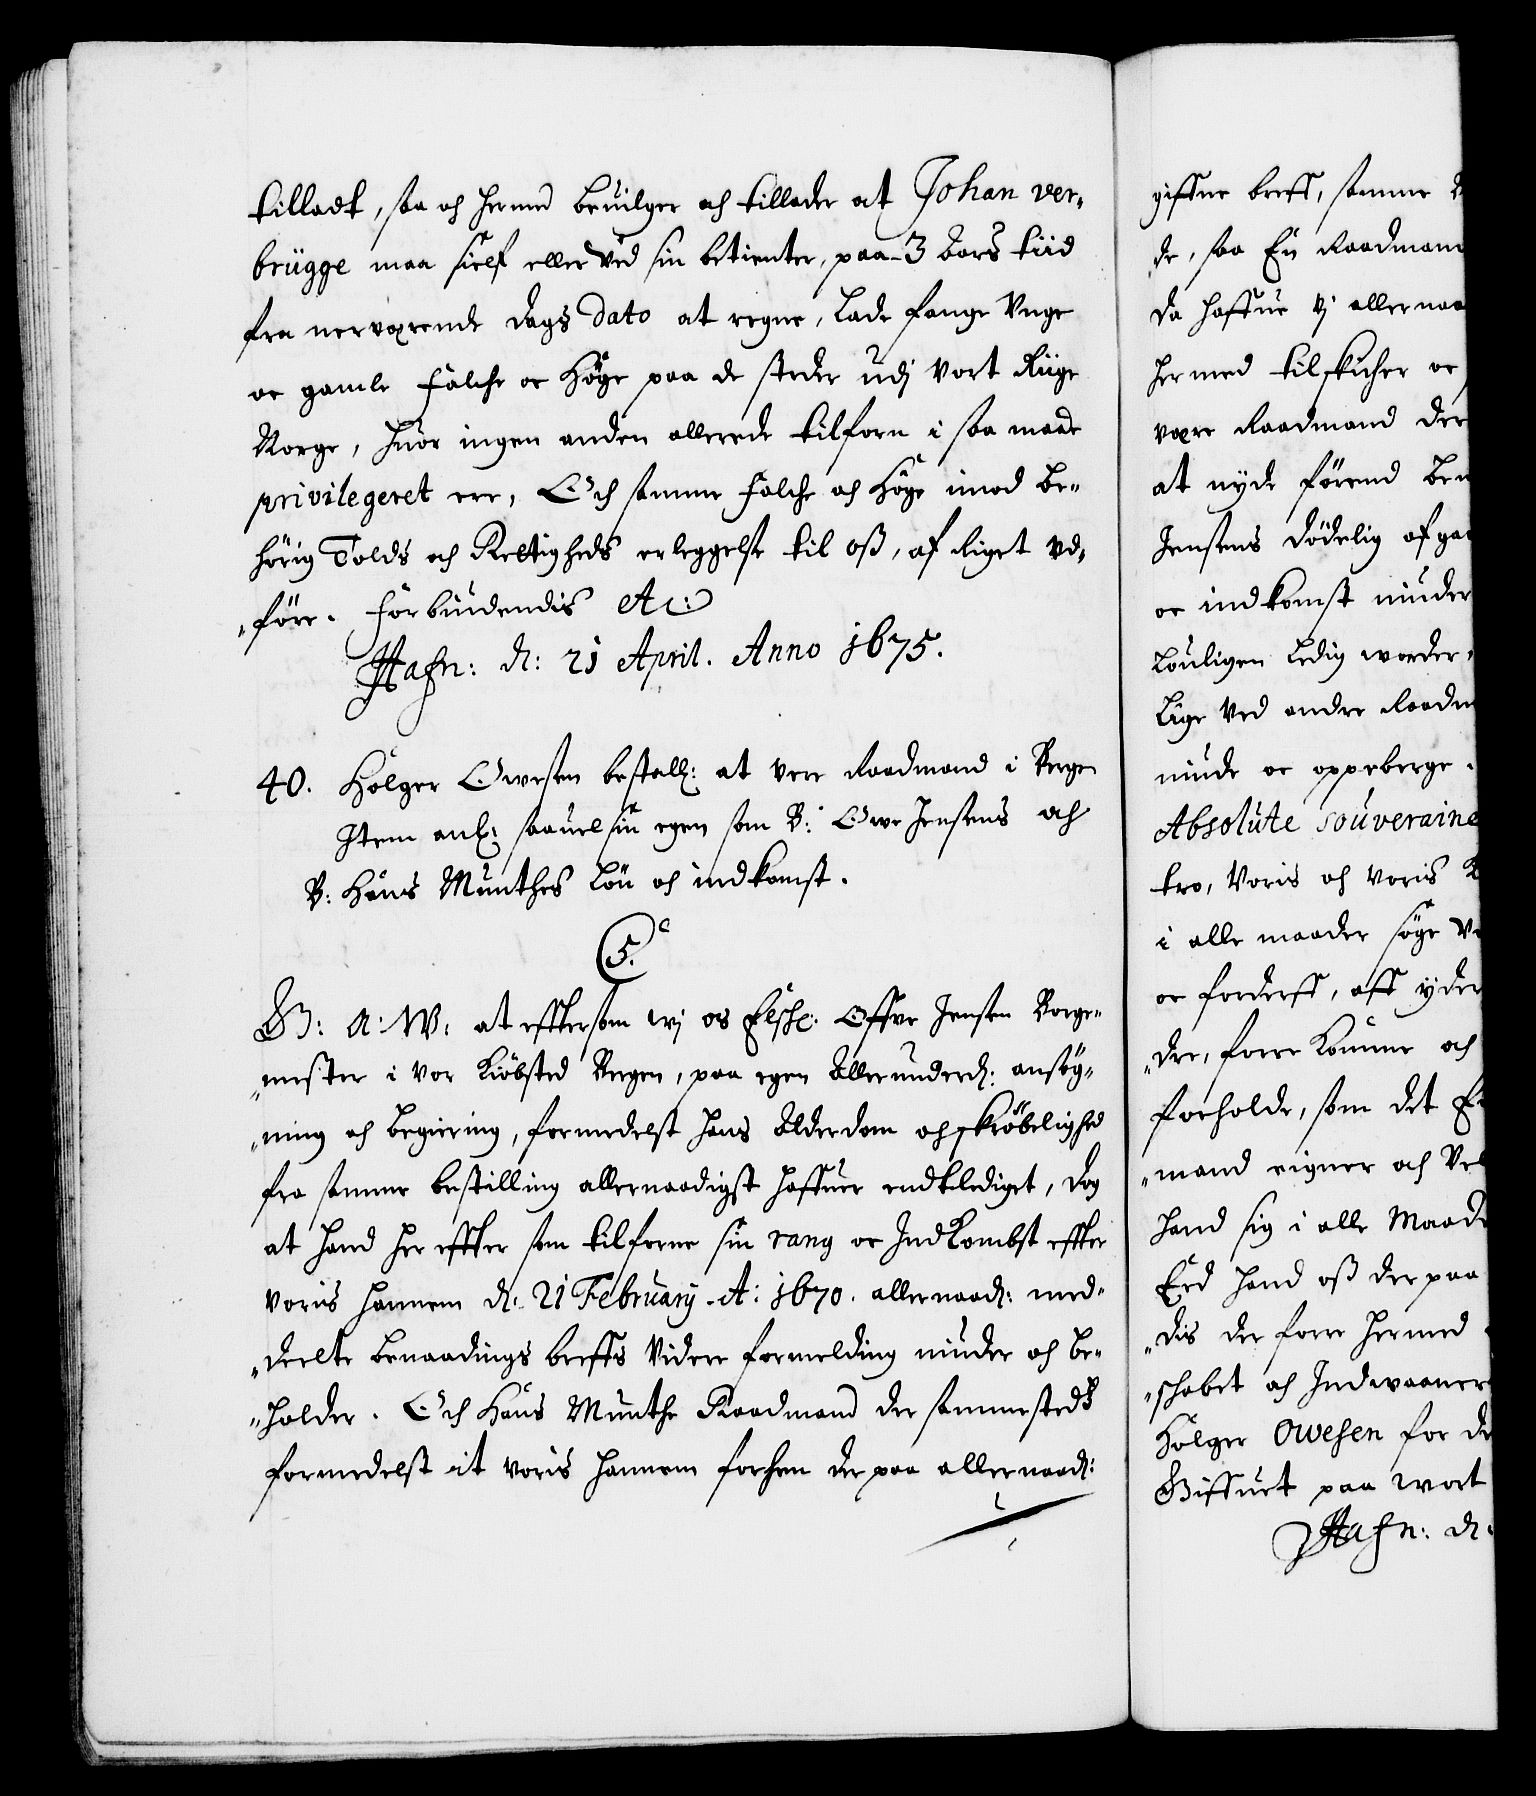 tilladt, saa och hermed beuilger och tillader at Johan ver-
brügge maa sielf eller ved sin betienter, paa 3 Aars tiid
fra nerværende dags dato at regne, lade fange Unge
oc gamle Falche oc Höge paa de steder udj vort Riige
Norge, huor ingen anden allerede tilforn i saa maade
privilegeret ere, Och samme Falche och Höge imod be-
hörig Tolds och Rettigheds erleggelse til oß, af Riget ud-
före. Forbiudendis Etc:
Hafn: d: 21 April. Anno 1675.
40. Holger Owesen bestall: at vere Raadmand i Bergen
Item anl: saauel sin egen som B: Owe Jensens och
B: Hans Munthes Lön och indkomst.
C5.
G: A: W: at effter som wj os Elsche: Offve Jensen Borge-
mester i vor Kiöbsted Bergen, paa egen Allerunderd: ansög-
ning och begiering, formedelst hans Alderdom och skröbelighed
fra samme bestilling allernaadigst haffuer endtlediget, dog
at hand her effter som tilforne sin rang oc Indkombst effter
voris hannem d: 21 February A: 1670. allernaad: med-
deelte benaadings breffs videre formelding niuder och be-
holder. Och Hans Munthe Raadmand der sammesteds
formedelst it voris hannem forhen der paa allernaad:
giffne breff, samme
de, saa En Raadmand
da haffue vj allernaa
hermed tilskicher oc
være Raadmand der
at nyde förend be
Jensens dödelig afga
oc indkomst niuder
Louligen Ledig worder,
Lige ved andre Raadm
niude oc oppeberge.
Absolute souveraine
tro, voris och voris
i alle maader söge
oc forderff, aff yder
dre, forre komme och
forholde, som det
mand eigner och vel
hand sig i alle Maade
Eed hand oß der paa
dis der forre hermed
schabet och Indwaaner
Holger Owesen for de
Giffuet paa wort
Hafn: d: